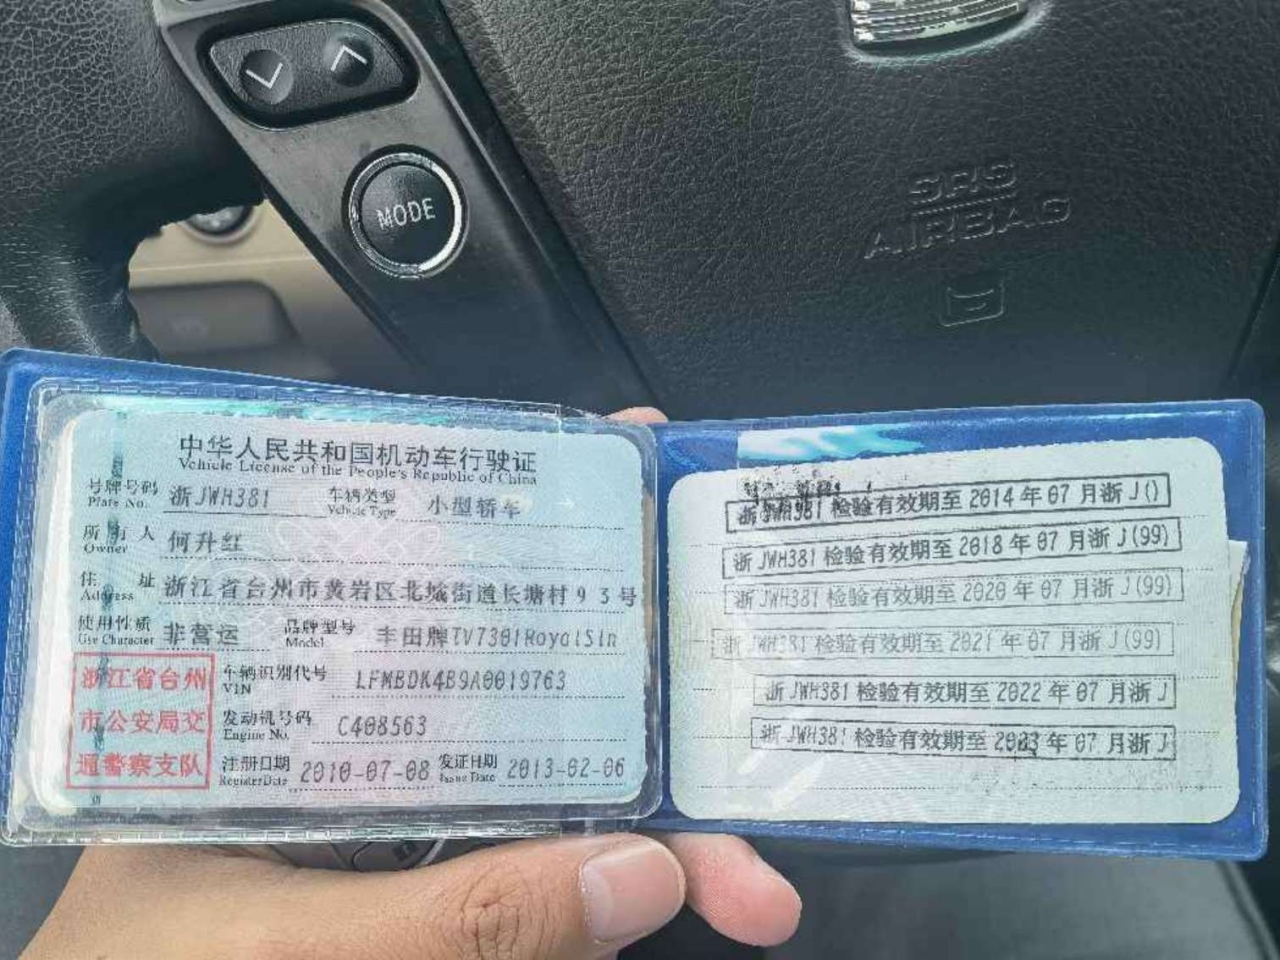 MODE
SRS
AIRBAG
中华人民共和国机动车行驶证
Vehicle License of the People's Republic of China
号牌号码 浙JWH381 车辆类型 小型轿车
Plate No. Vehicle Type
所有人 何升红
Owner
住址 浙江省台州市黄岩区北城街道长塘村93号
Address
使用性质 非营运 品牌型号 丰田牌TV7301RoyalSln
Use Character Model
浙江省台州
市公安局交
通警察支队
车辆识别代号 LFMBDK4B9A0019763
VIN
发动机号码 C408563
Engine No.
注册日期 2010-07-08 发证日期 2013-02-06
Register Date Issue Date
浙JWH381 检验有效期至 2014 年 07 月浙 J()
浙JWH381 检验有效期至 2018 年 07 月浙 J(99)
浙JWH381 检验有效期至 2020 年 07 月浙 J(99)
浙JWH381 检验有效期至 2021 年 07 月浙 J(99)
浙JWH381 检验有效期至 2022 年 07 月浙 J
浙JWH381 检验有效期至 2023 年 07 月浙 J